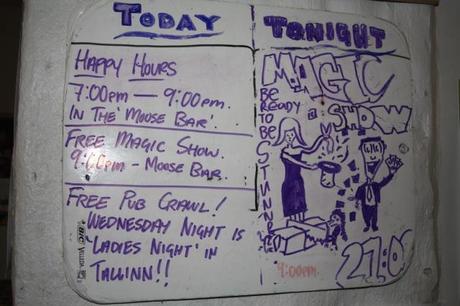 TODAY
HAPPY HOURS
7:00PM — 9:00PM.
IN THE 'MOOSE BAR'.
FREE MAGIC SHOW.
9:00PM - MOOSE BAR.
FREE PUB CRAWL!
WEDNESDAY NIGHT IS
'LADIES NIGHT' IN
TALLINN!!
TONIGHT
MAGIC
SHOW
BE
READY
TO
BE
9:00PM.